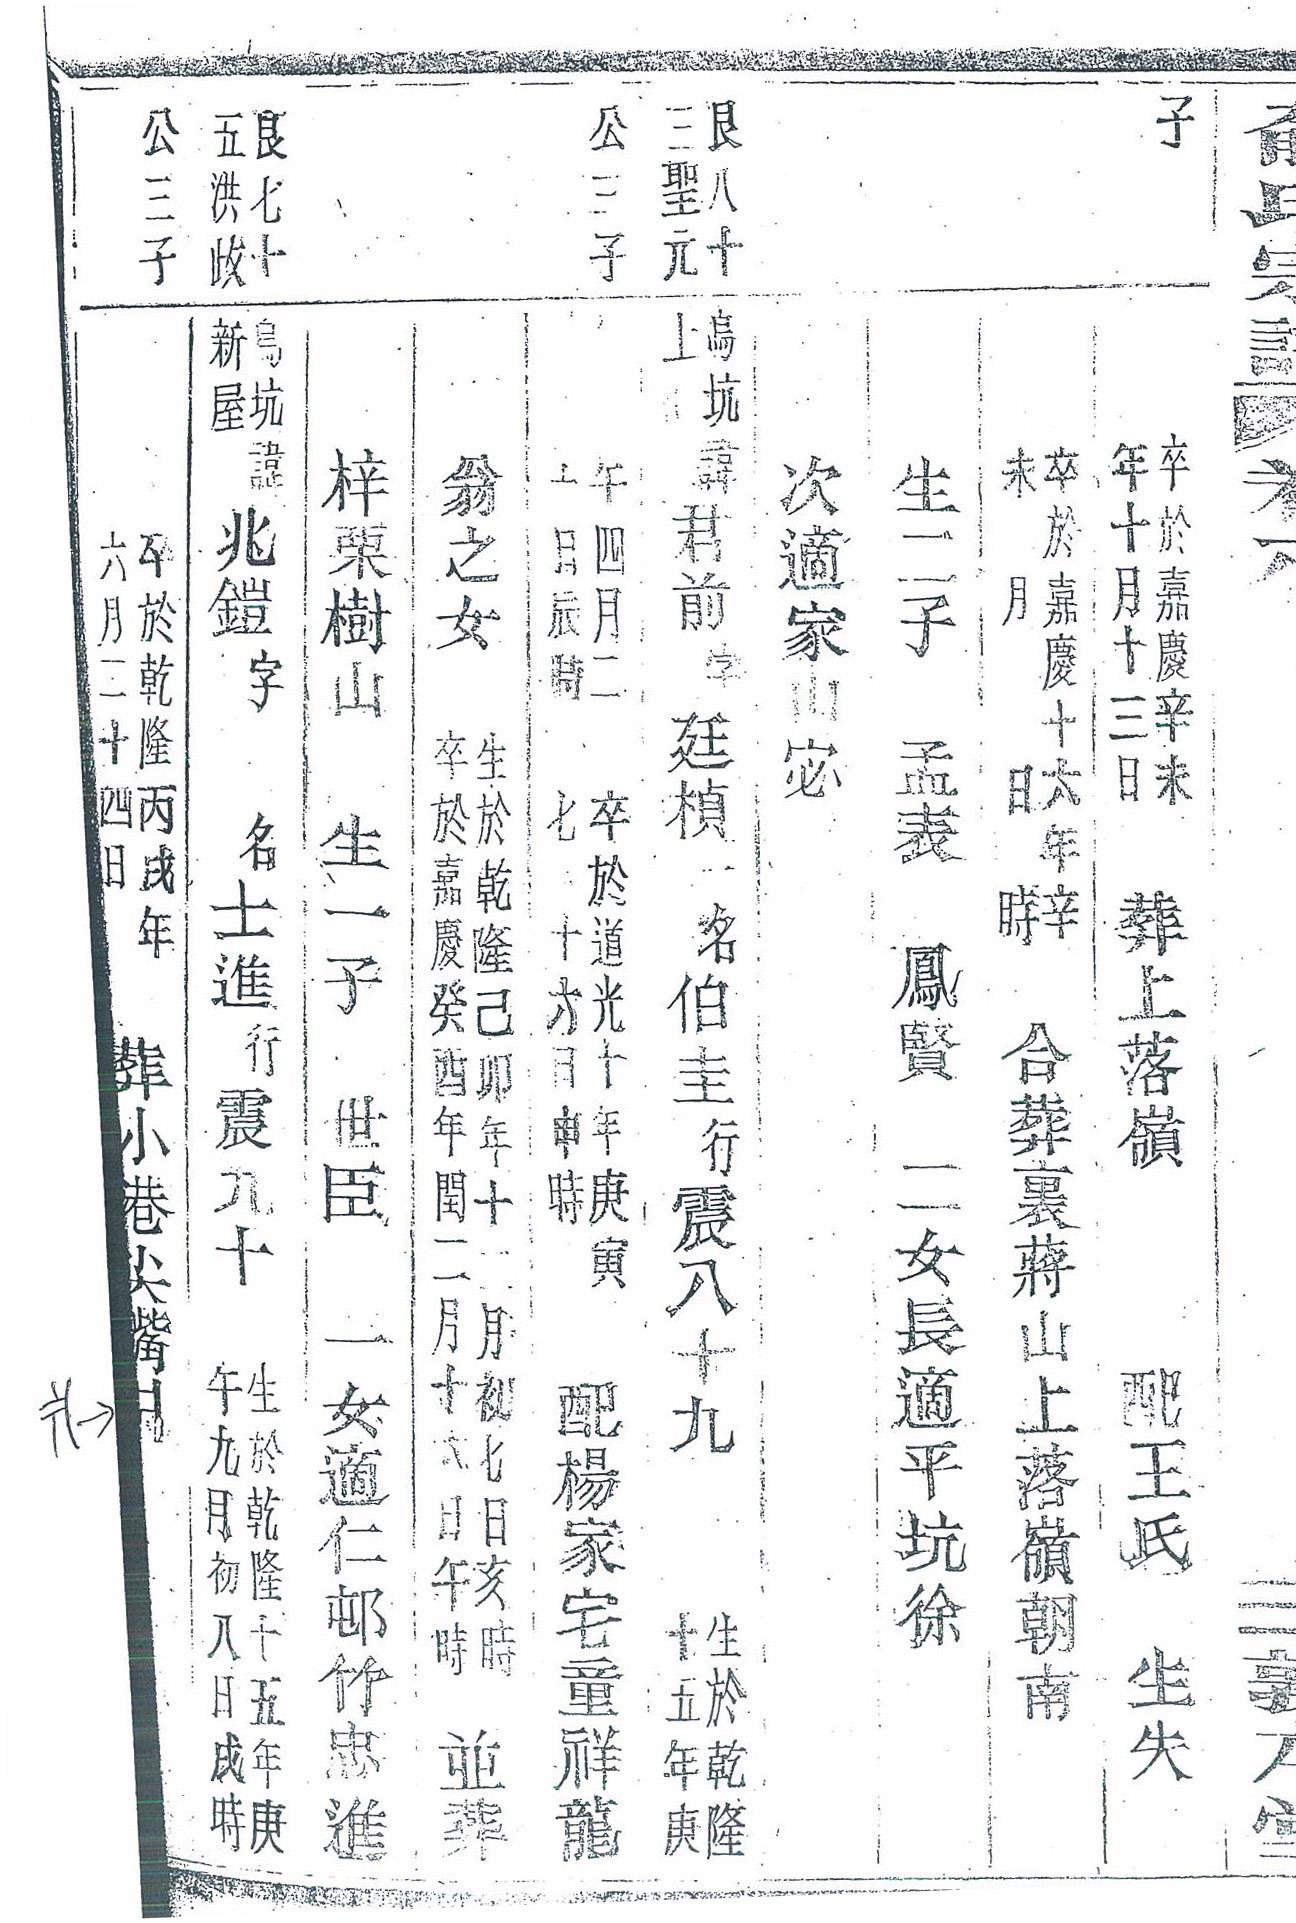 氏宗譜 卷六
子
卒於嘉慶辛未年十月十三日 葬上落嶺 配王氏 生失
卒於嘉慶十六年辛未 月 日 時 合葬裏蔣山上落嶺朝南
生二子 孟表 鳳賢 二女長適平坑徐
次適家山宓
艮八十三聖元
烏坑上 諱君前 字廷楨 一名伯圭 行震八十九 生於乾隆十五年庚
公三子
午四月二十日辰時 卒於道光十年庚寅七 十六日申時 配楊家宅童祥龍
翁之女 生於乾隆己卯年十一月初七日亥時 卒於嘉慶癸酉年閏二月十六日午時 並葬
梓栗樹山 生一子 世臣 一女適仁邨竹忠進
艮七十五洪歧
烏坑新屋 諱兆鎧 字 名士進 行震九十 生於乾隆十五年庚午九月初八日戌時
公三子
卒於乾隆丙戌年六月二十四日 葬小巷尖嘴